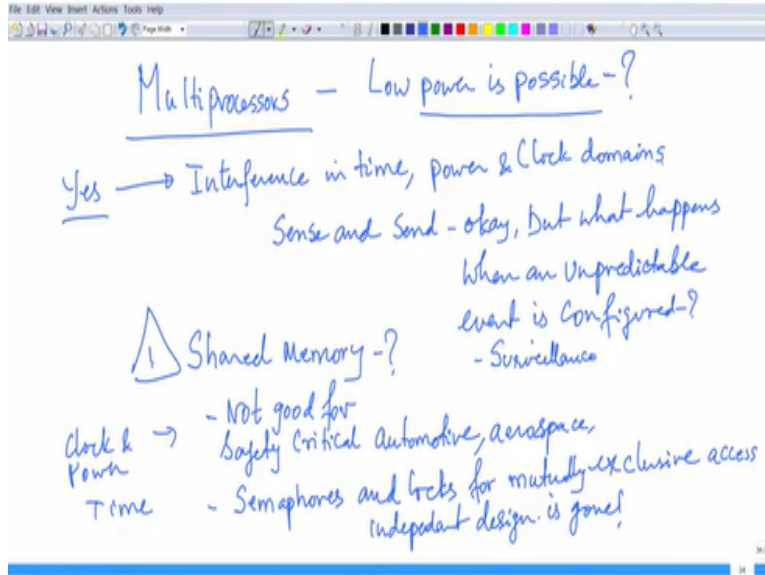 File Edit View Insert Actions Tools Help
Page Width
Multiprocessors - Low power is possible-?
Yes → Interference in time, power & Clock domains
Sense and Send - okay, But what happens
when an unpredictable
event is Configured-?
- Surveillance
! Shared Memory-?
- Not good for
Clock & → Safety Critical automotive, aerospace,
Power
Time - Semaphores and locks for mutually exclusive access
indepedant design is gone!
34